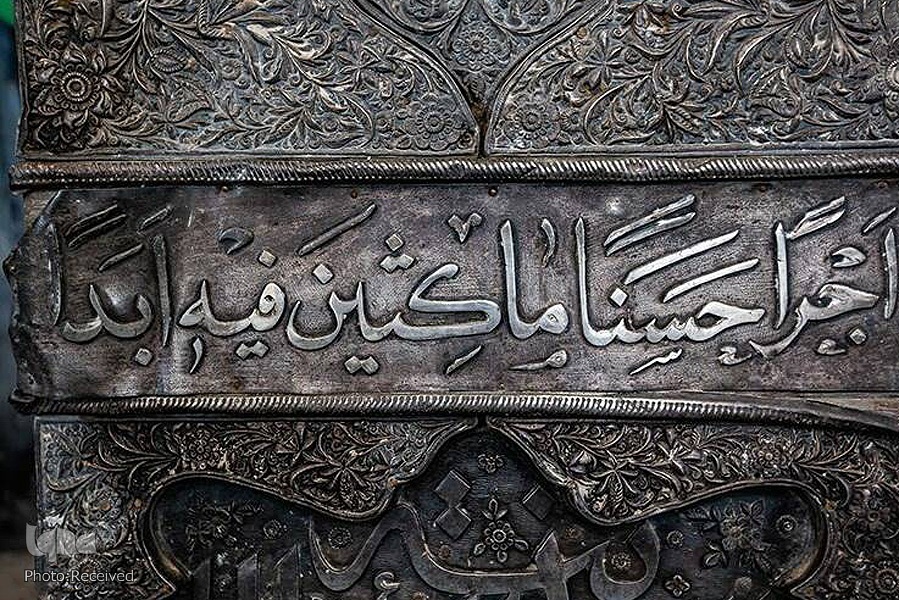 اَجْرًا حَسَنًا مَاكِثِينَ فِيهِ اَبَدًا
iqna
Photo:Received